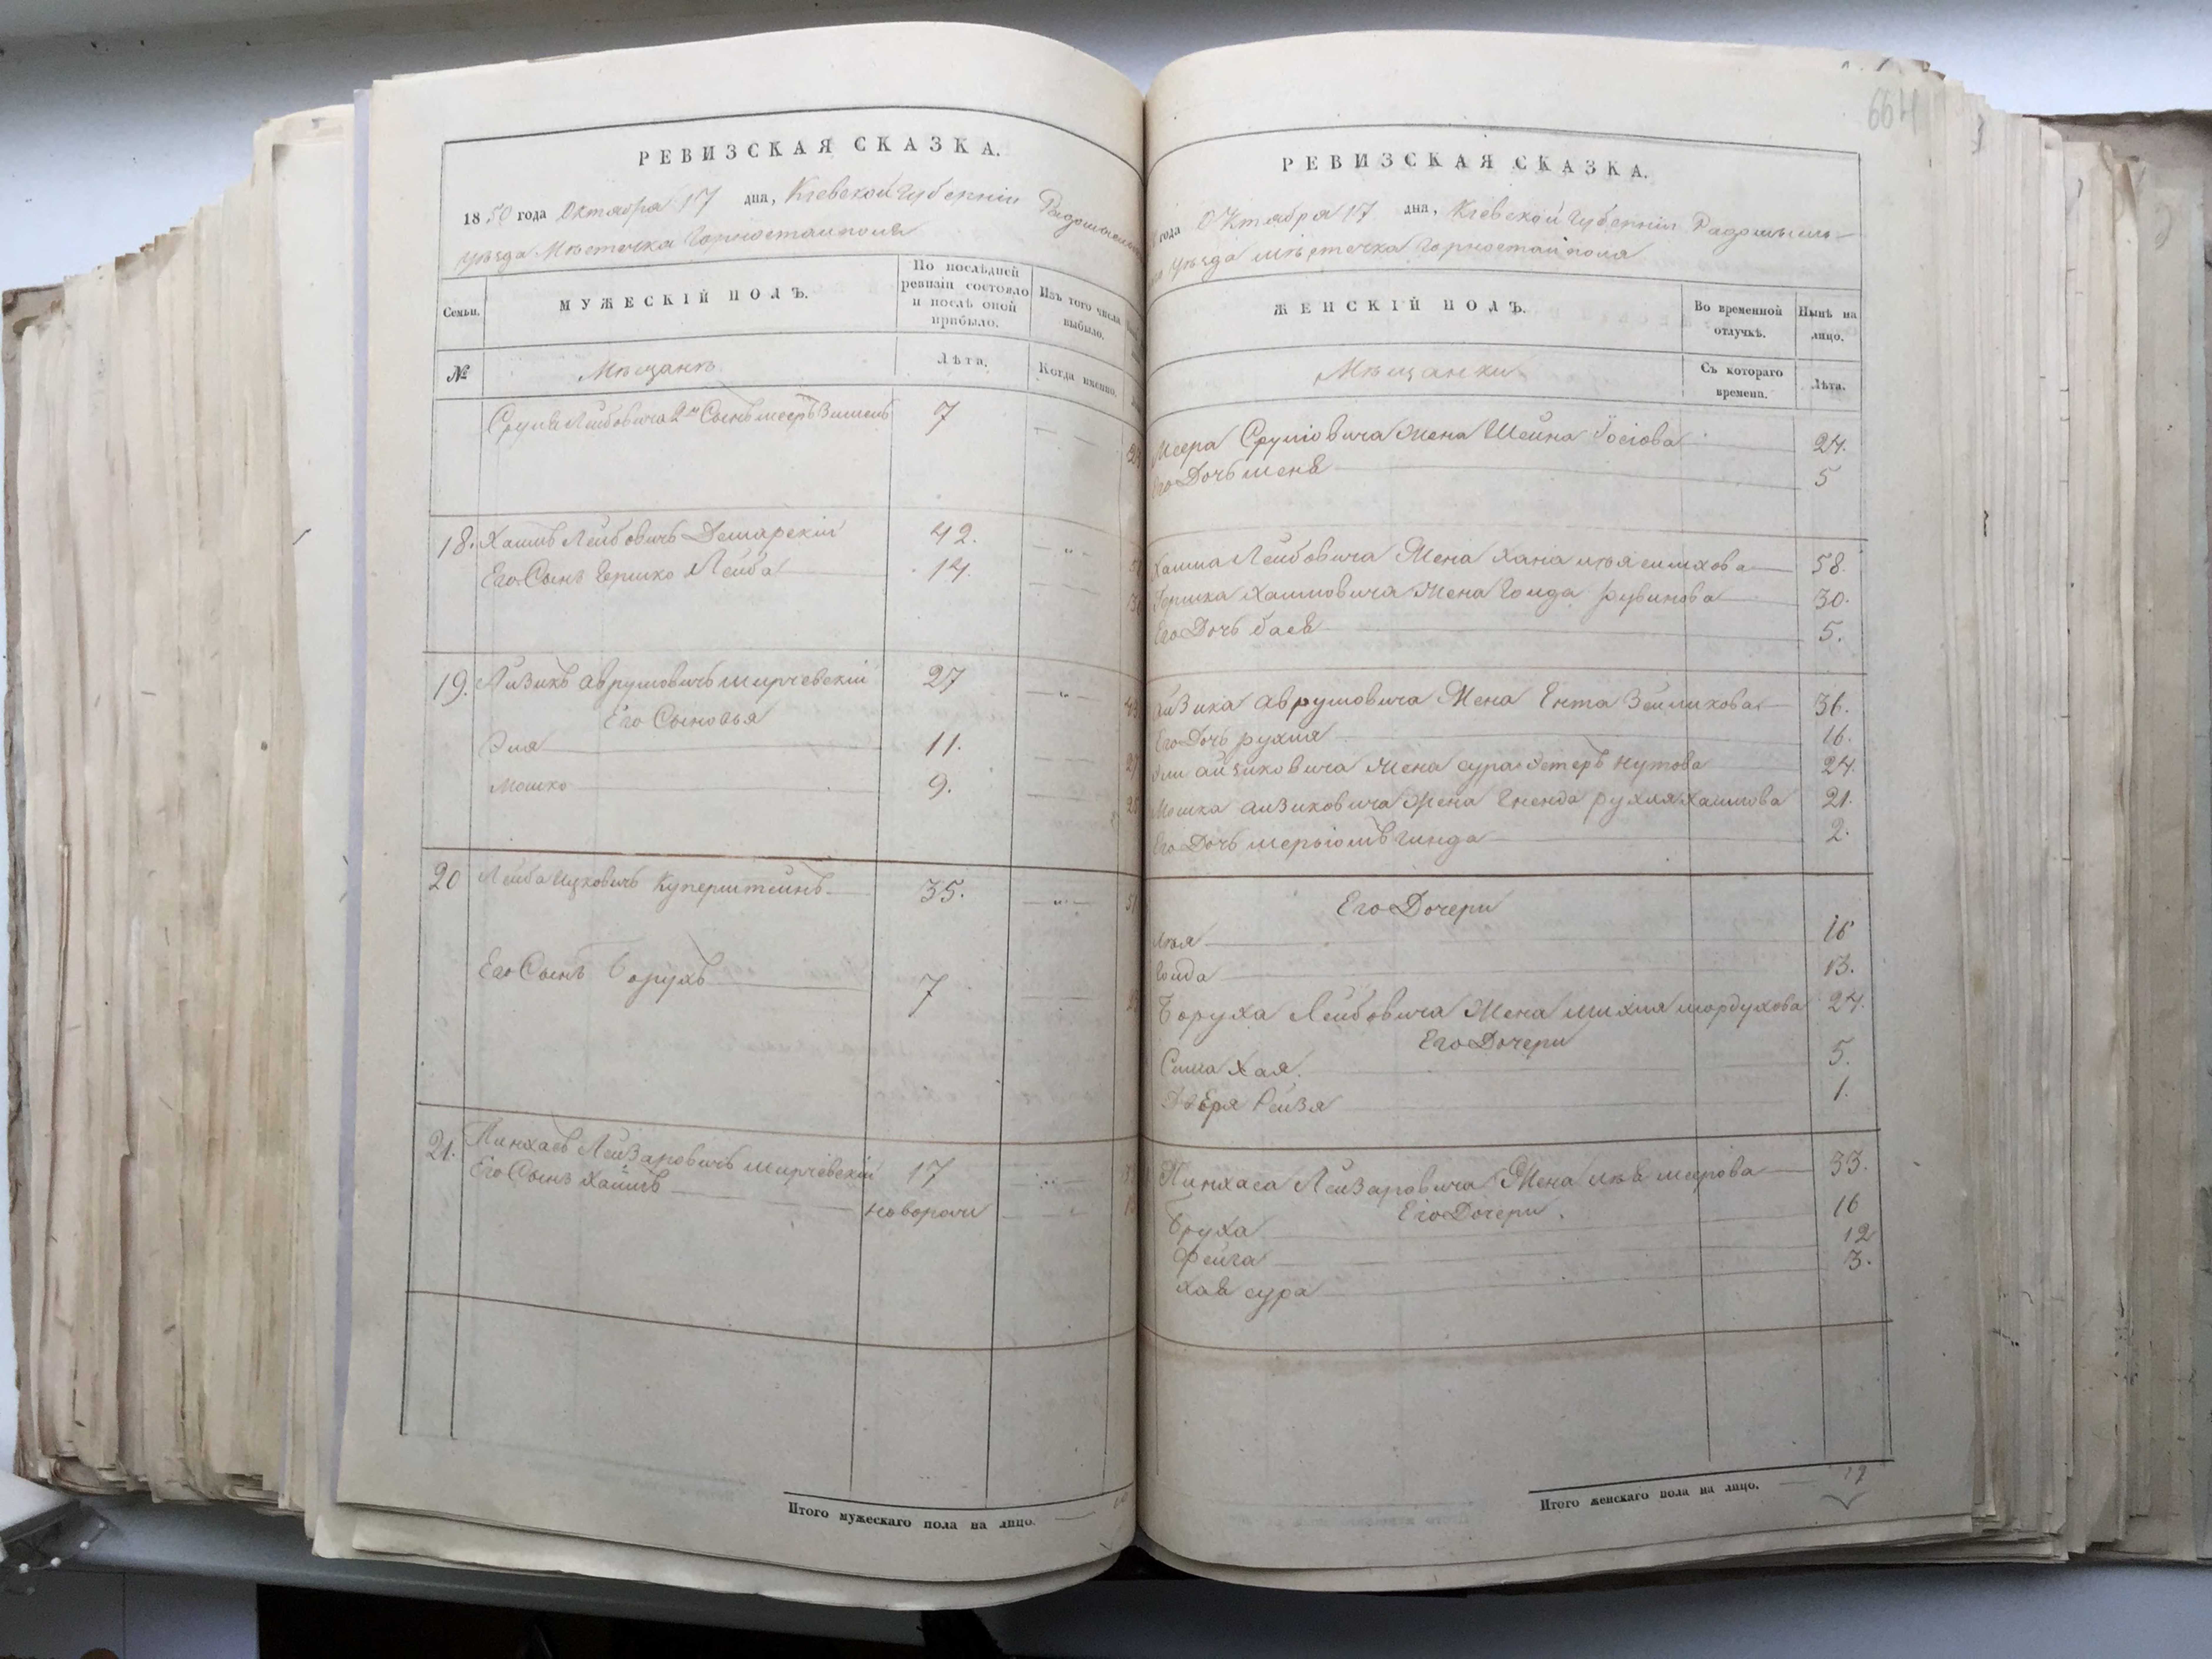 РЕВИЗСКАЯ СКАЗКА.
1850 года Октября 17 дня, Кіевской Губерніи
уѣзда Мѣстечка Горностайполя
Семьи.
МУЖЕСКІЙ ПОЛЪ.
По послѣдней ревизіи состояло и послѣ оной прибыло.
Изъ того числа выбыло.
№
Мѣщанѣ
Лѣта.
Когда именно.
Сруля Лейбовича 2й Сынъ мееръ Зименъ 7
18. Хаимъ Лейбовичъ Демарскій 42.
Его Сынъ Гершко Лейба 14.
19. Айзикъ Аврумовичъ мирчевскій 27
Его Сыновья
Эля 11.
Мошко 9.
20 Лейба Ицковичъ Куперштейнъ 35.
Его Сынъ Борухъ 7
21. Пинхасъ Лейзаровичъ мирчевскій 17
Его Сынъ Хаимъ новорож
Итого мужескаго пола на лицо.
664
РЕВИЗСКАЯ СКАЗКА.
года Октября 17 дня, Кіевской Губерніи Радомысль-
уѣзда мѣстечка Горностайполя
ЖЕНСКІЙ ПОЛЪ.
Во временной отлучкѣ.
Нынѣ на лицо.
Мѣщанки
Съ котораго времени.
Лѣта.
Меера Срулёвича Жена Шейна Іосіова 24.
Его Дочь менѣ 5
Хаима Лейбовича Жена Хана лѣя симхова 58.
Гершка Хаимовича Жена Гоида рувинова 30.
Его Дочь басѣ 5.
Айзика Аврумовича Жена Ента Зейликова 36.
Его Дочь рухля 16.
Эли айзиковича Жена сура Эстеръ нутова 24.
Мошка айзиковича Жена Гненда рухля хаимова 21.
Его Дочь гинда 2.
Его Дочери
лѣя 16
Гоида 13.
Боруха Лейбовича Жена михля мордухова 24.
Его Дочери
Сима Хая. 5.
Рейзя 1.
Пинхаса Лейзаровича Жена меирова 33.
Его Дочери.
Бруха 16
Фейга 12
сура 3.
Итого женскаго пола на лицо. 19